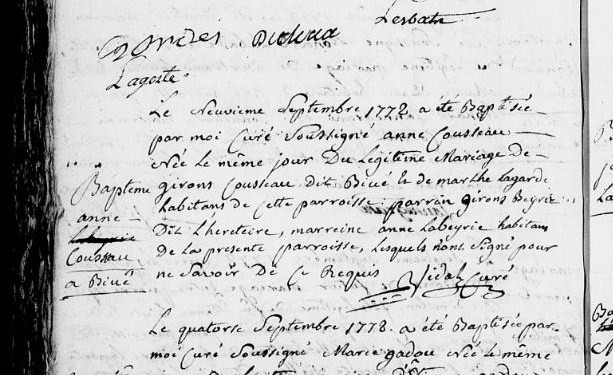 Lesbats
Lageste
Le neuvieme Septembre 1778 a été Baptisée
par moi Curé Soussigné anne Cousseau
née le même jour Du Legitime Mariage De
girons Cousseau dit Bicué & de marthe lagarde
habitans de cette parroisse parrain girons Beyrie
Dit Lhereteire, marreine anne Labeyrie habitans
de la presente parroisse, lesquels n'ont signé pour
ne Savoir De Ce Requis Vidal Curé
Bapteme
anne
Cousseau
a Bicué
Le quatorse Septembre 1778 a été Baptisée par
moi Curé Soussigné Marie gadou née le même